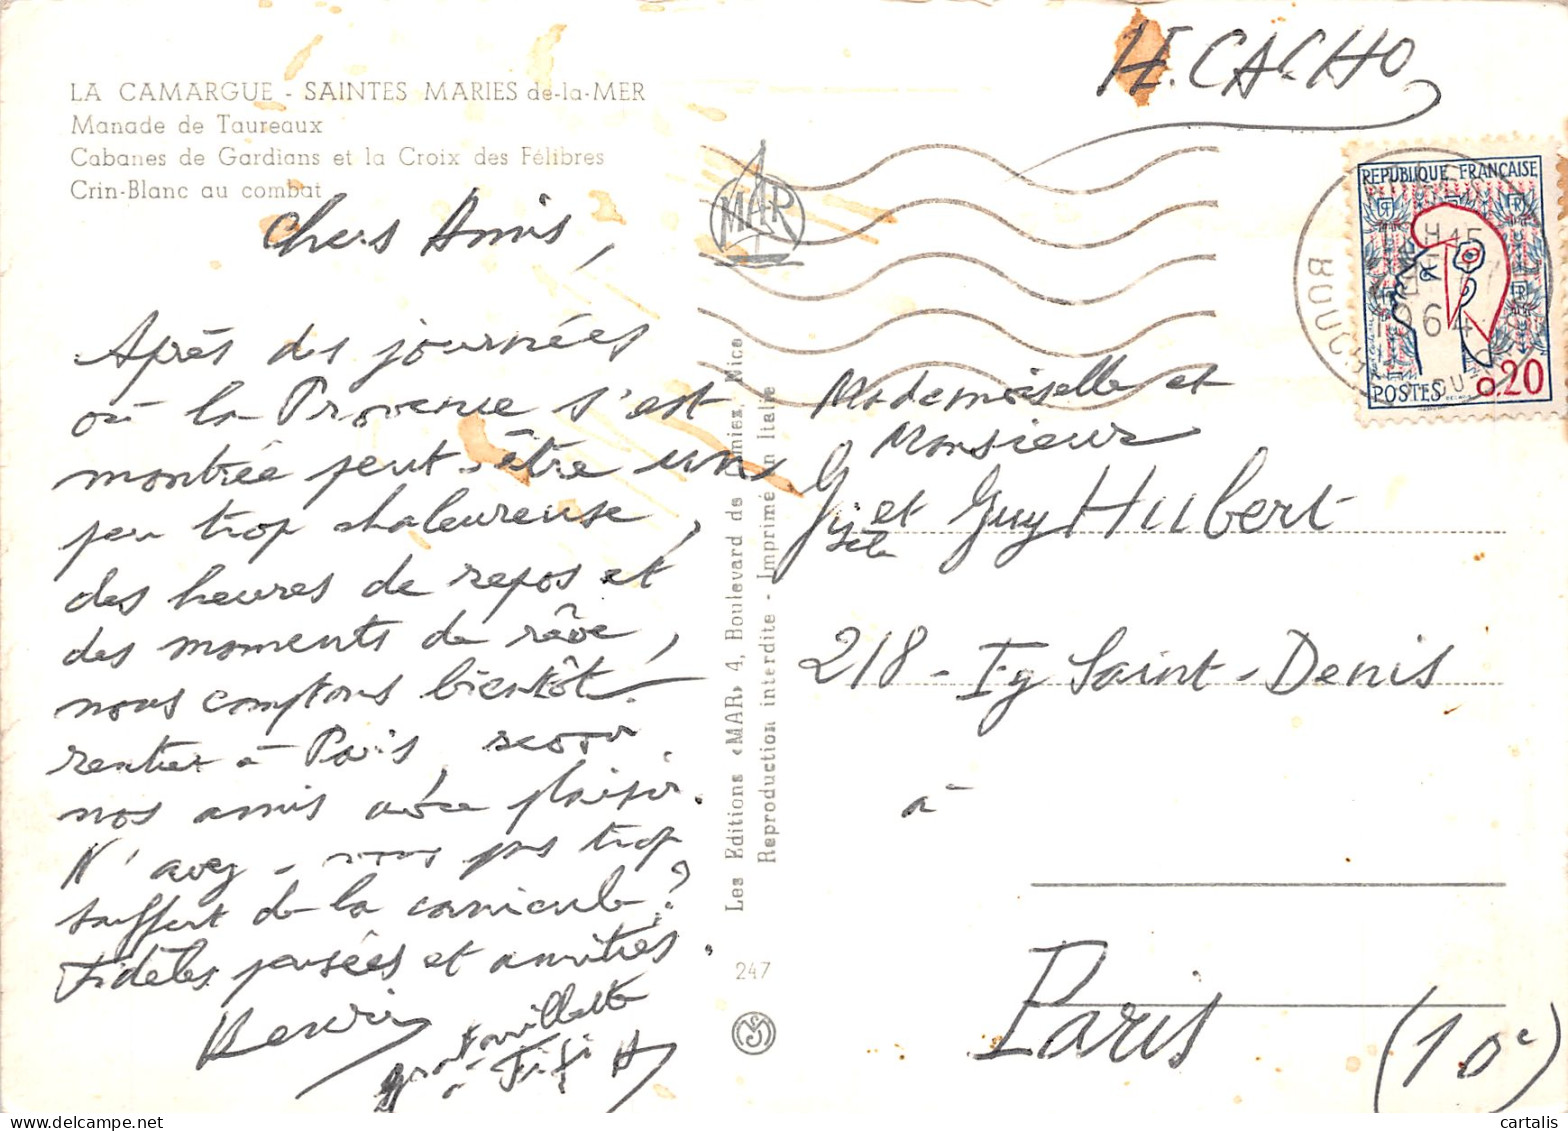 LA CAMARGUE - SAINTES MARIES de-la-MER
Manade de Taureaux
Cabanes de Gardians et la Croix des Félibres
Crin-Blanc au combat
Chers Amis,
Après des journées
où la Provence s'est
montrée peut-être un
peu trop chaleureuse,
des heures de repos et
des moments de rêve,
nous comptons bientôt
rentrer à Paris, revoir
nos amis avec plaisir.
N'avez-vous pas trop
souffert de la canicule?
Fidèles pensées et amitiés.
à Fifi
MAR
Les Editions «MAR» 4, Boulevard de Cimiez, Nice
Reproduction interdite - Imprimé en Italie
247
H. CACHO
REPUBLIQUE FRANÇAISE
POSTES 0,20
BUCH
1964
Mademoiselle et
Monsieur
Gisèle et Guy Hubert
218 - Fg Saint-Denis
à
Paris (10e)
cartalis